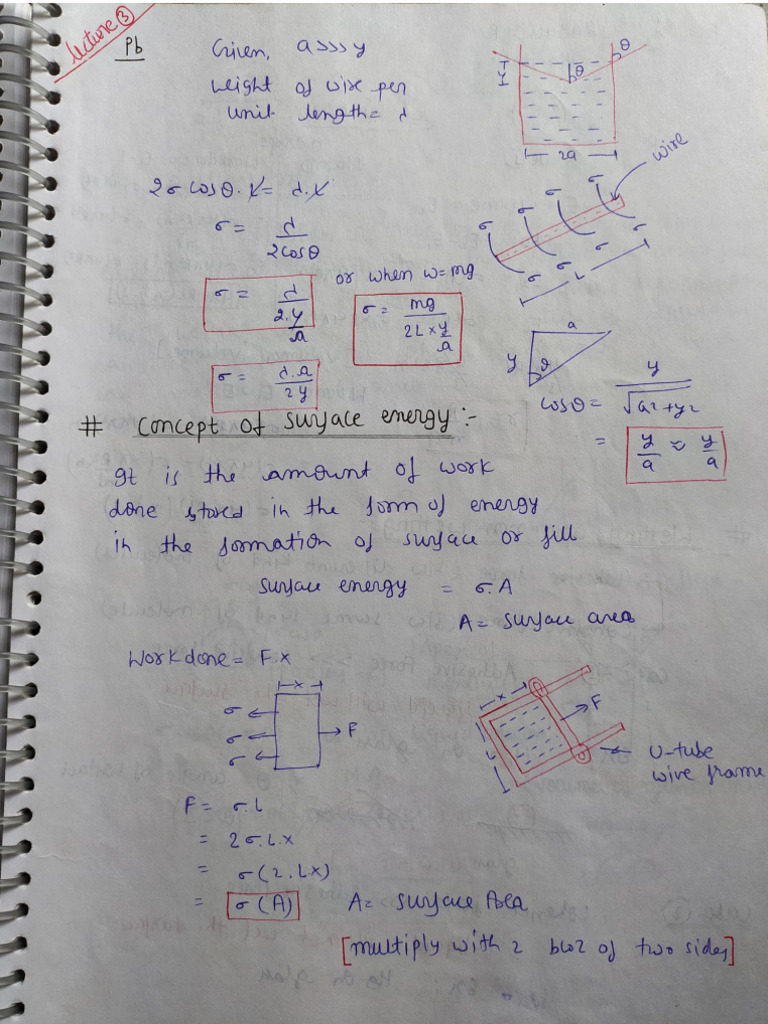 Lecture ③
Pb
Given, a>>>y
Weight of wire per
unit length = λ
θ
θ
y
2a
wire
2σ cosθ.L = λ.L
σ = λ/2cosθ
σ σ σ σ
σ σ σ σ
L
σ = λ/(2.y/a)
or when w=mg
σ = mg/(2L×y/a)
σ = λ.a/2y
a
y
θ
cosθ = y/√a²+y²
= y/a ≈ y/a
# Concept of surface energy:-
It is the amount of work
done stored in the form of energy
in the formation of surface or fill
Surface energy = σ.A
A = Surface area
Work done = F.x
x
σ
σ
σ
F
x
F
L
U-tube
wire frame
F = σ.L
= 2σ.L.x
= σ(2.Lx)
= σ(A)
A= Surface Area
[multiply with 2 bcoz of two sides]